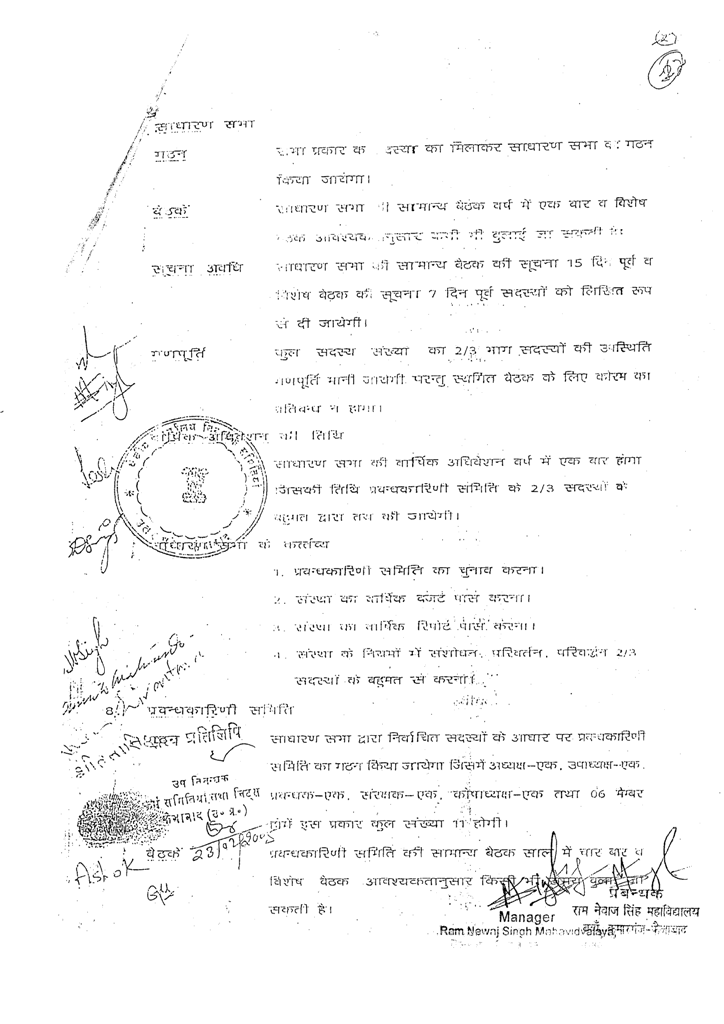 (2)
साधारण सभा
गठन
सभा प्रकार के सदस्यों को मिलाकर साधारण सभा का गठन
किया जायेगा।
बैठकें
साधारण सभा की सामान्य बैठक वर्ष में एक बार व विशेष
बैठक आवश्यकतानुसार कभी भी बुलाई जा सकती है।
सूचना अवधि
साधारण सभा की सामान्य बैठक की सूचना 15 दिन पूर्व व
विशेष बैठक की सूचना 7 दिन पूर्व सदस्यों को लिखित रूप
से दी जायेगी।
गणपूर्ति
कुल सदस्य संख्या का 2/3 भाग सदस्यों की उपस्थिति
गणपूर्ति मानी जायेगी परन्तु स्थगित बैठक के लिए कोरम का
प्रतिबन्ध न होगा।
वार्षिक अधिवेशन की तिथि
साधारण सभा की वार्षिक अधिवेशन वर्ष में एक बार होगा
जिसकी तिथि प्रबन्धकारिणी समिति के 2/3 सदस्यों के
बहुमत द्वारा तय की जायेगी।
साधारण सभा के कर्त्तव्य
1. प्रबन्धकारिणी समिति का चुनाव करना।
2. संस्था का वार्षिक बजट पास करना।
3. संस्था का वार्षिक रिपोर्ट पास करना।
4. संस्था के नियमों में संशोधन, परिवर्तन, परिवर्द्धन 2/3
सदस्यों के बहुमत से करना।
8. प्रबन्धकारिणी समिति
प्रतिलिपि
साधारण सभा द्वारा निर्वाचित सदस्यों के आधार पर प्रबन्धकारिणी
समिति का गठन किया जायेगा जिसमें अध्यक्ष-एक, उपाध्यक्ष-एक,
उप निबन्धक
फर्म समितियां तथा चिट्स
प्रबन्धक-एक, संरक्षक-एक, कोषाध्यक्ष-एक तथा 06 मेम्बर
फैजाबाद (उ० प्र०)
होंगे इस प्रकार कुल संख्या 11 होगी।
23/02/2005
बैठकें
प्रबन्धकारिणी समिति की सामान्य बैठक साल में चार बार व
विशेष बैठक आवश्यकतानुसार किसी भी समय बुलाई जा
सकती है।
Ashok
प्रबन्धक
Manager
राम नेवाज सिंह महाविद्यालय
Ram Newaj Singh Mahavidyalaya,
कुमारगंज-फैजाबाद